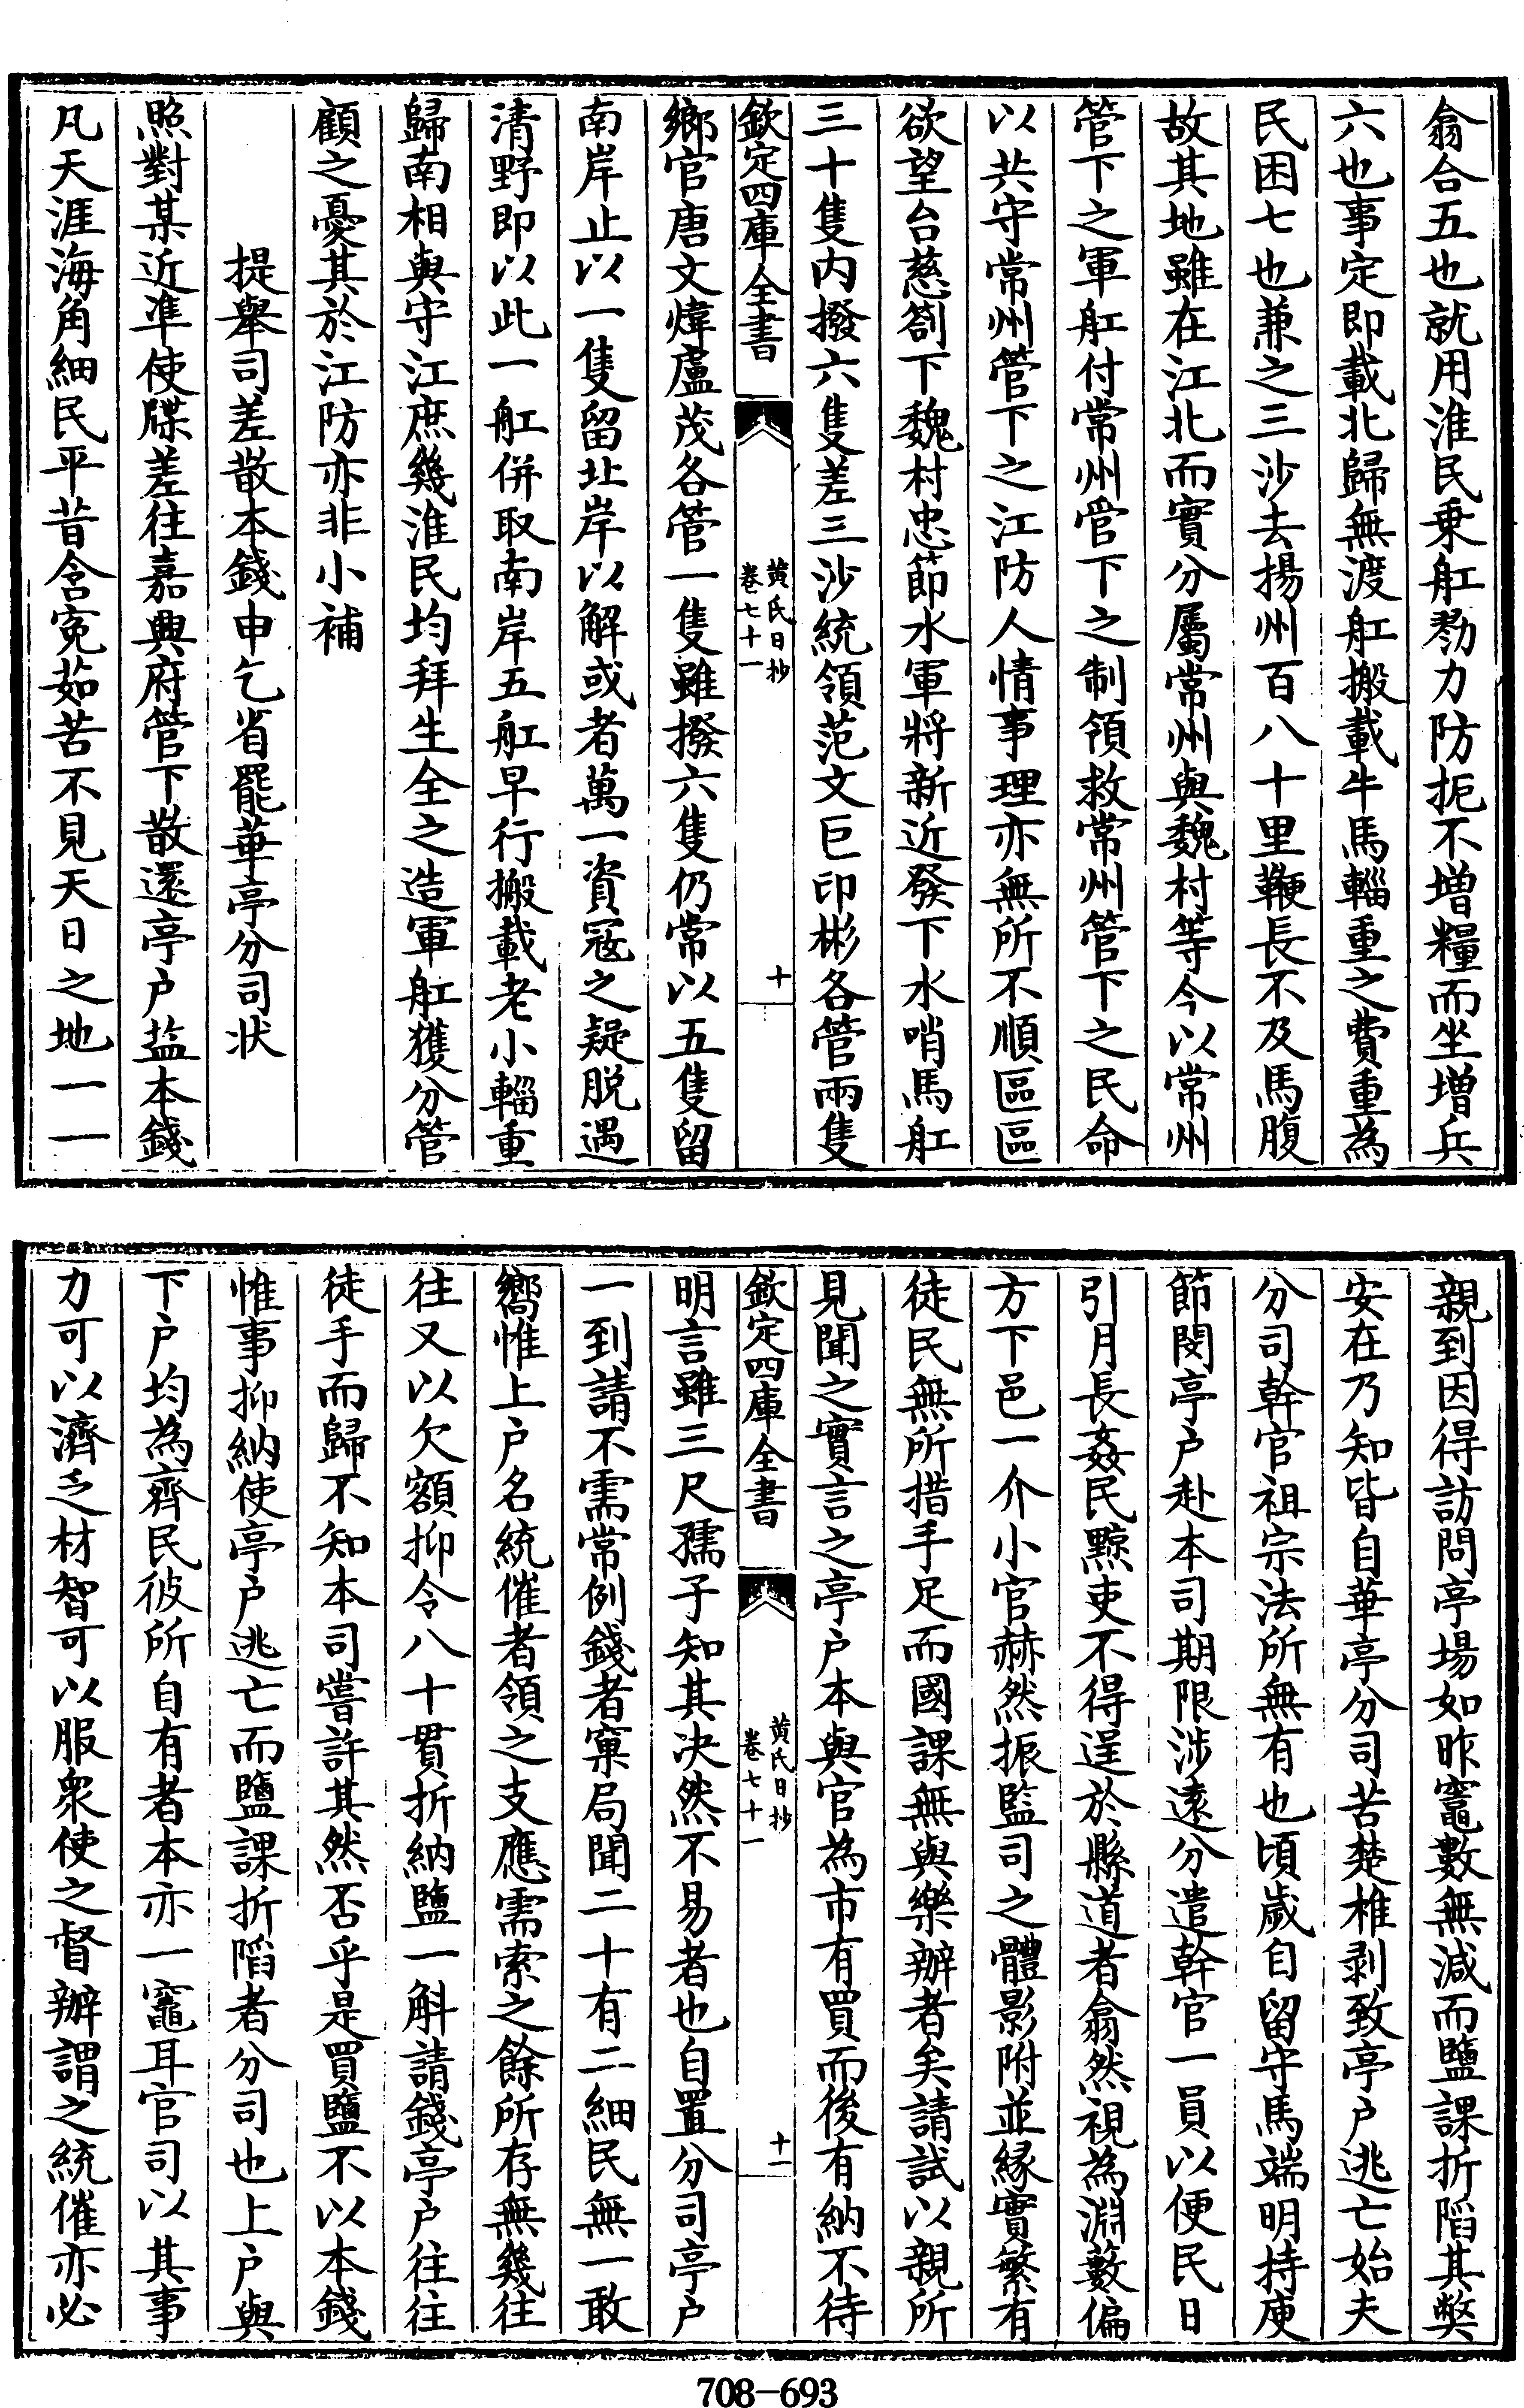 翕合五也就用淮民乗舡勠力防扼不増糧而坐増兵
六也事定即載北歸無渡舡搬載牛馬輜重之費重為
民困七也兼之三沙去揚州百八十里鞭長不及馬腹
故其地雖在江北而實分屬常州與魏村等今以常州
管下之軍舡付常州管下之制領救常州管下之民命
以共守常州管下之江防人情事理亦無所不順區區
欲望台慈劄下魏村忠節水軍將新近發下水哨馬舡
三十隻内撥六隻差三沙統領范文巨印彬各管兩隻
欽定四庫全書
黄氏日抄
卷七十一
十
鄉官唐文煒盧茂各管一隻雖撥六隻仍常以五隻留
南岸止以一隻留北岸以解或者萬一資冦之疑脱遇
清野即以此一舡併取南岸五舡早行搬載老小輜重
歸南相與守江庶幾淮民均拜生全之造軍舡獲分管
顧之憂其於江防亦非小補
提舉司差散本錢申乞省罷華亭分司状
照對某近凖使牒差往嘉興府管下散還亭户盐本錢
凡天涯海角細民平昔含寃茹苦不見天日之地一一
親到因得訪問亭場如昨竈數無減而鹽課折陷其獘
安在乃知皆自華亭分司苦楚椎剥致亭户逃亡始夫
分司幹官祖宗法所無有也頃歲自留守馬端明持庾
節閔亭户赴本司期限涉逺分遣幹官一員以便民日
引月長姦民黥吏不得逞於縣道者翕然視為淵藪偏
方下邑一介小官赫然振監司之體影附並縁實繁有
徒民無所措手足而國課無與樂辦者矣請試以親所
見聞之實言之亭户本與官為市有買而後有納不待
欽定四庫全書
黄氏日抄
卷七十一
十一
明言雖三尺孺子知其决然不易者也自置分司亭户
一到請不需常例錢者窠局聞二十有二細民無一敢
嚮惟上户名統催者領之支應需索之餘所存無幾往
往又以欠額抑令八十貫折納鹽一斛請錢亭户往往
徒手而歸不知本司嘗許其然否乎是買鹽不以本錢
惟事抑納使亭户逃亡而鹽課折陷者分司也上户與
下户均為齊民彼所自有者本亦一竈耳官司以其事
力可以濟乏材智可以服衆使之督辦謂之統催亦必
708-693